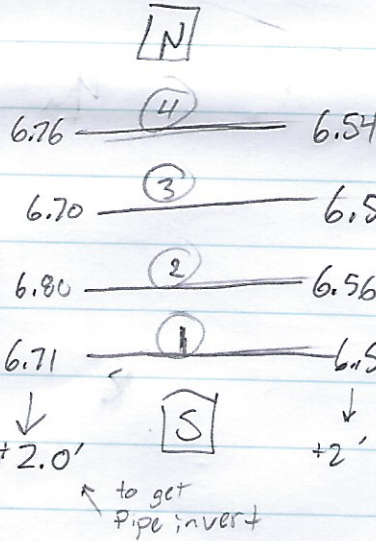 N
6.76 4 6.54
6.70 3 6.5
6.80 2 6.56
6.71 1 6.5
S
+2.0' +2'
to get
pipe invert